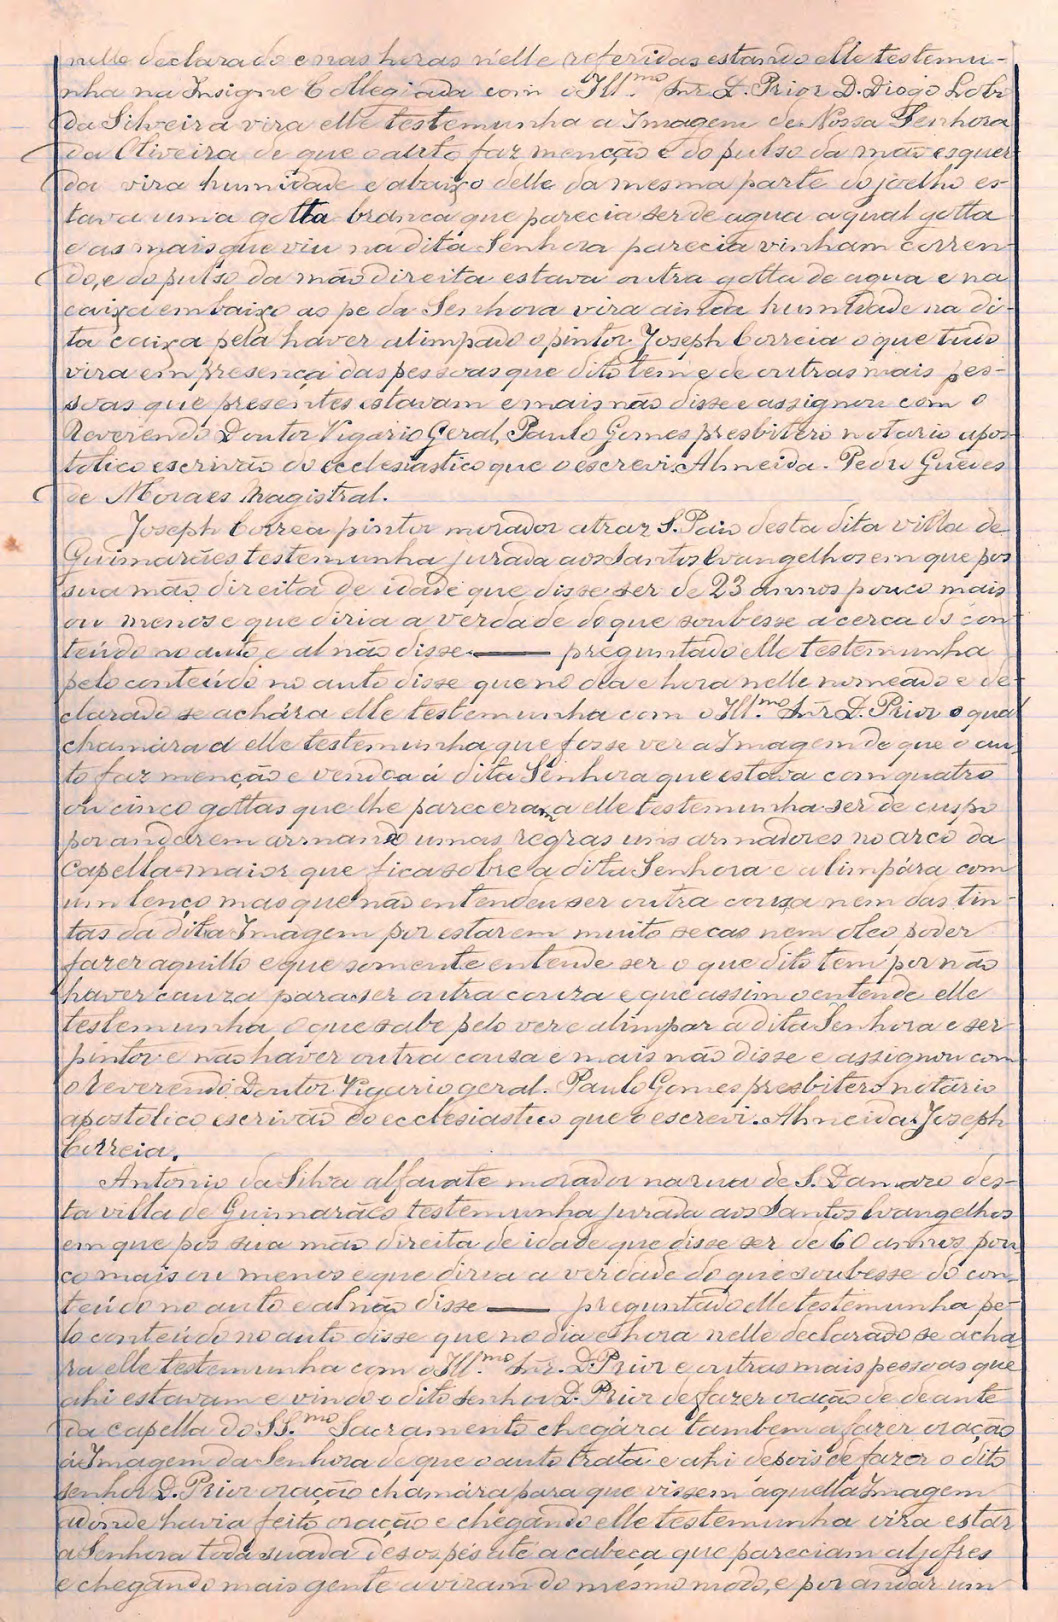 nelle declarado e nas horas n'elle referidas estando elle testemu-
nha na Insigne Collegiada com o Ill.mo Snr. D. Prior D. Diogo Lobo
da Silveira vira elle testemunha a Imagem de Nossa Senhora
da Oliveira de que o auto faz menção e do pulso da mão esquer-
da vira humidade e abaixo delle da mesma parte do joelho es-
tava uma gotta branca que parecia ser de agua a qual gotta
e as mais que viu na dita Senhora parecia vinham corren-
do, e do pulso da mão direita estava outra gotta de agua e na
caixa embaixo ao pe da Senhora vira ainda humidade na di-
ta caixa pela haver alimpado o pintor Joseph Correia o que tudo
vira em presença das pessoas que dito tem e de outras mais pes-
soas que presentes estavam e mais não disse e assignou com o
Reverendo Doutor Vigario Geral, Paulo Gomes presbitero notario apos-
tolico escrivão do ecclesiastico que o escrevi. Almeida. Pedro Guedes
de Moraes Magistral.
Joseph Correa pintor morador atraz S. Paio desta dita villa de
Guimarães testemunha jurada aos Santos Evangelhos em que pos
sua mão direita de idade que disse ser de 23 annos pouco mais
ou menos e que diria a verdade do que soubesse acerca do con-
teúdo no auto e al não disse — preguntado elle testemunha
pelo conteúdo no auto disse que no dia e hora nelle nomeado e de-
clarado se achára elle testemunha com o Ill.mo Snr. D. Prior o qual
chamára a elle testemunha que fosse ver a Imagem de que o au-
to faz menção e vendoa á dita Senhora que estava com quatro
ou cinco gottas que lhe pareceram a elle testemunha ser de cuspo
por andarem armando umas regras uns armadores no arco da
Capella-maior que fica sobre a dita Senhora e a limpára com
um lenço mas que não entendeu ser outra cousa nem das tin-
tas da dita Imagem por estarem muito secas nem oleo poder
fazer aquillo e que somente entende ser o que dito tem por não
haver cauza para ser outra couza e que assim o entende elle
testemunha o que sabe pelo ver e alimpar a dita Senhora e ser
pintor e não haver outra cousa e mais não disse e assignou com
o Reverendo Doutor Vigario geral. Paulo Gomes presbitero notario
apostolico escrivão do ecclesiastico que o escrevi. Almeida. Joseph
Correia.
Antonio da Silva alfaiate morador na rua de S. Damazo des-
ta villa de Guimarães testemunha jurada aos Santos Evangelhos
em que pôs sua mão direita de idade que disse ser de 60 annos pou-
co mais ou menos e que diria a verdade do que soubesse do con-
teúdo no auto e al não disse — preguntado elle testemunha pe-
lo conteúdo no auto disse que no dia e hora nelle declarado se acha-
ra elle testemunha com o Ill.mo Snr. D. Prior e outras mais pessoas que
ahi estavam e vindo o dito senhor D. Prior de fazer oração de deante
da capella do SS.mo Sacramento chegára tambem a fazer oração
á Imagem da Senhora de que o auto trata e ahi depois de fazer o dito
senhor D. Prior oração chamára para que vissem aquella Imagem
adonde havia feito oração e chegando elle testemunha vira estar
a Senhora toda suada desos pés até a cabeça que pareciam aljofres
e chegando mais gente a viram do mesmo modo, e por andar um